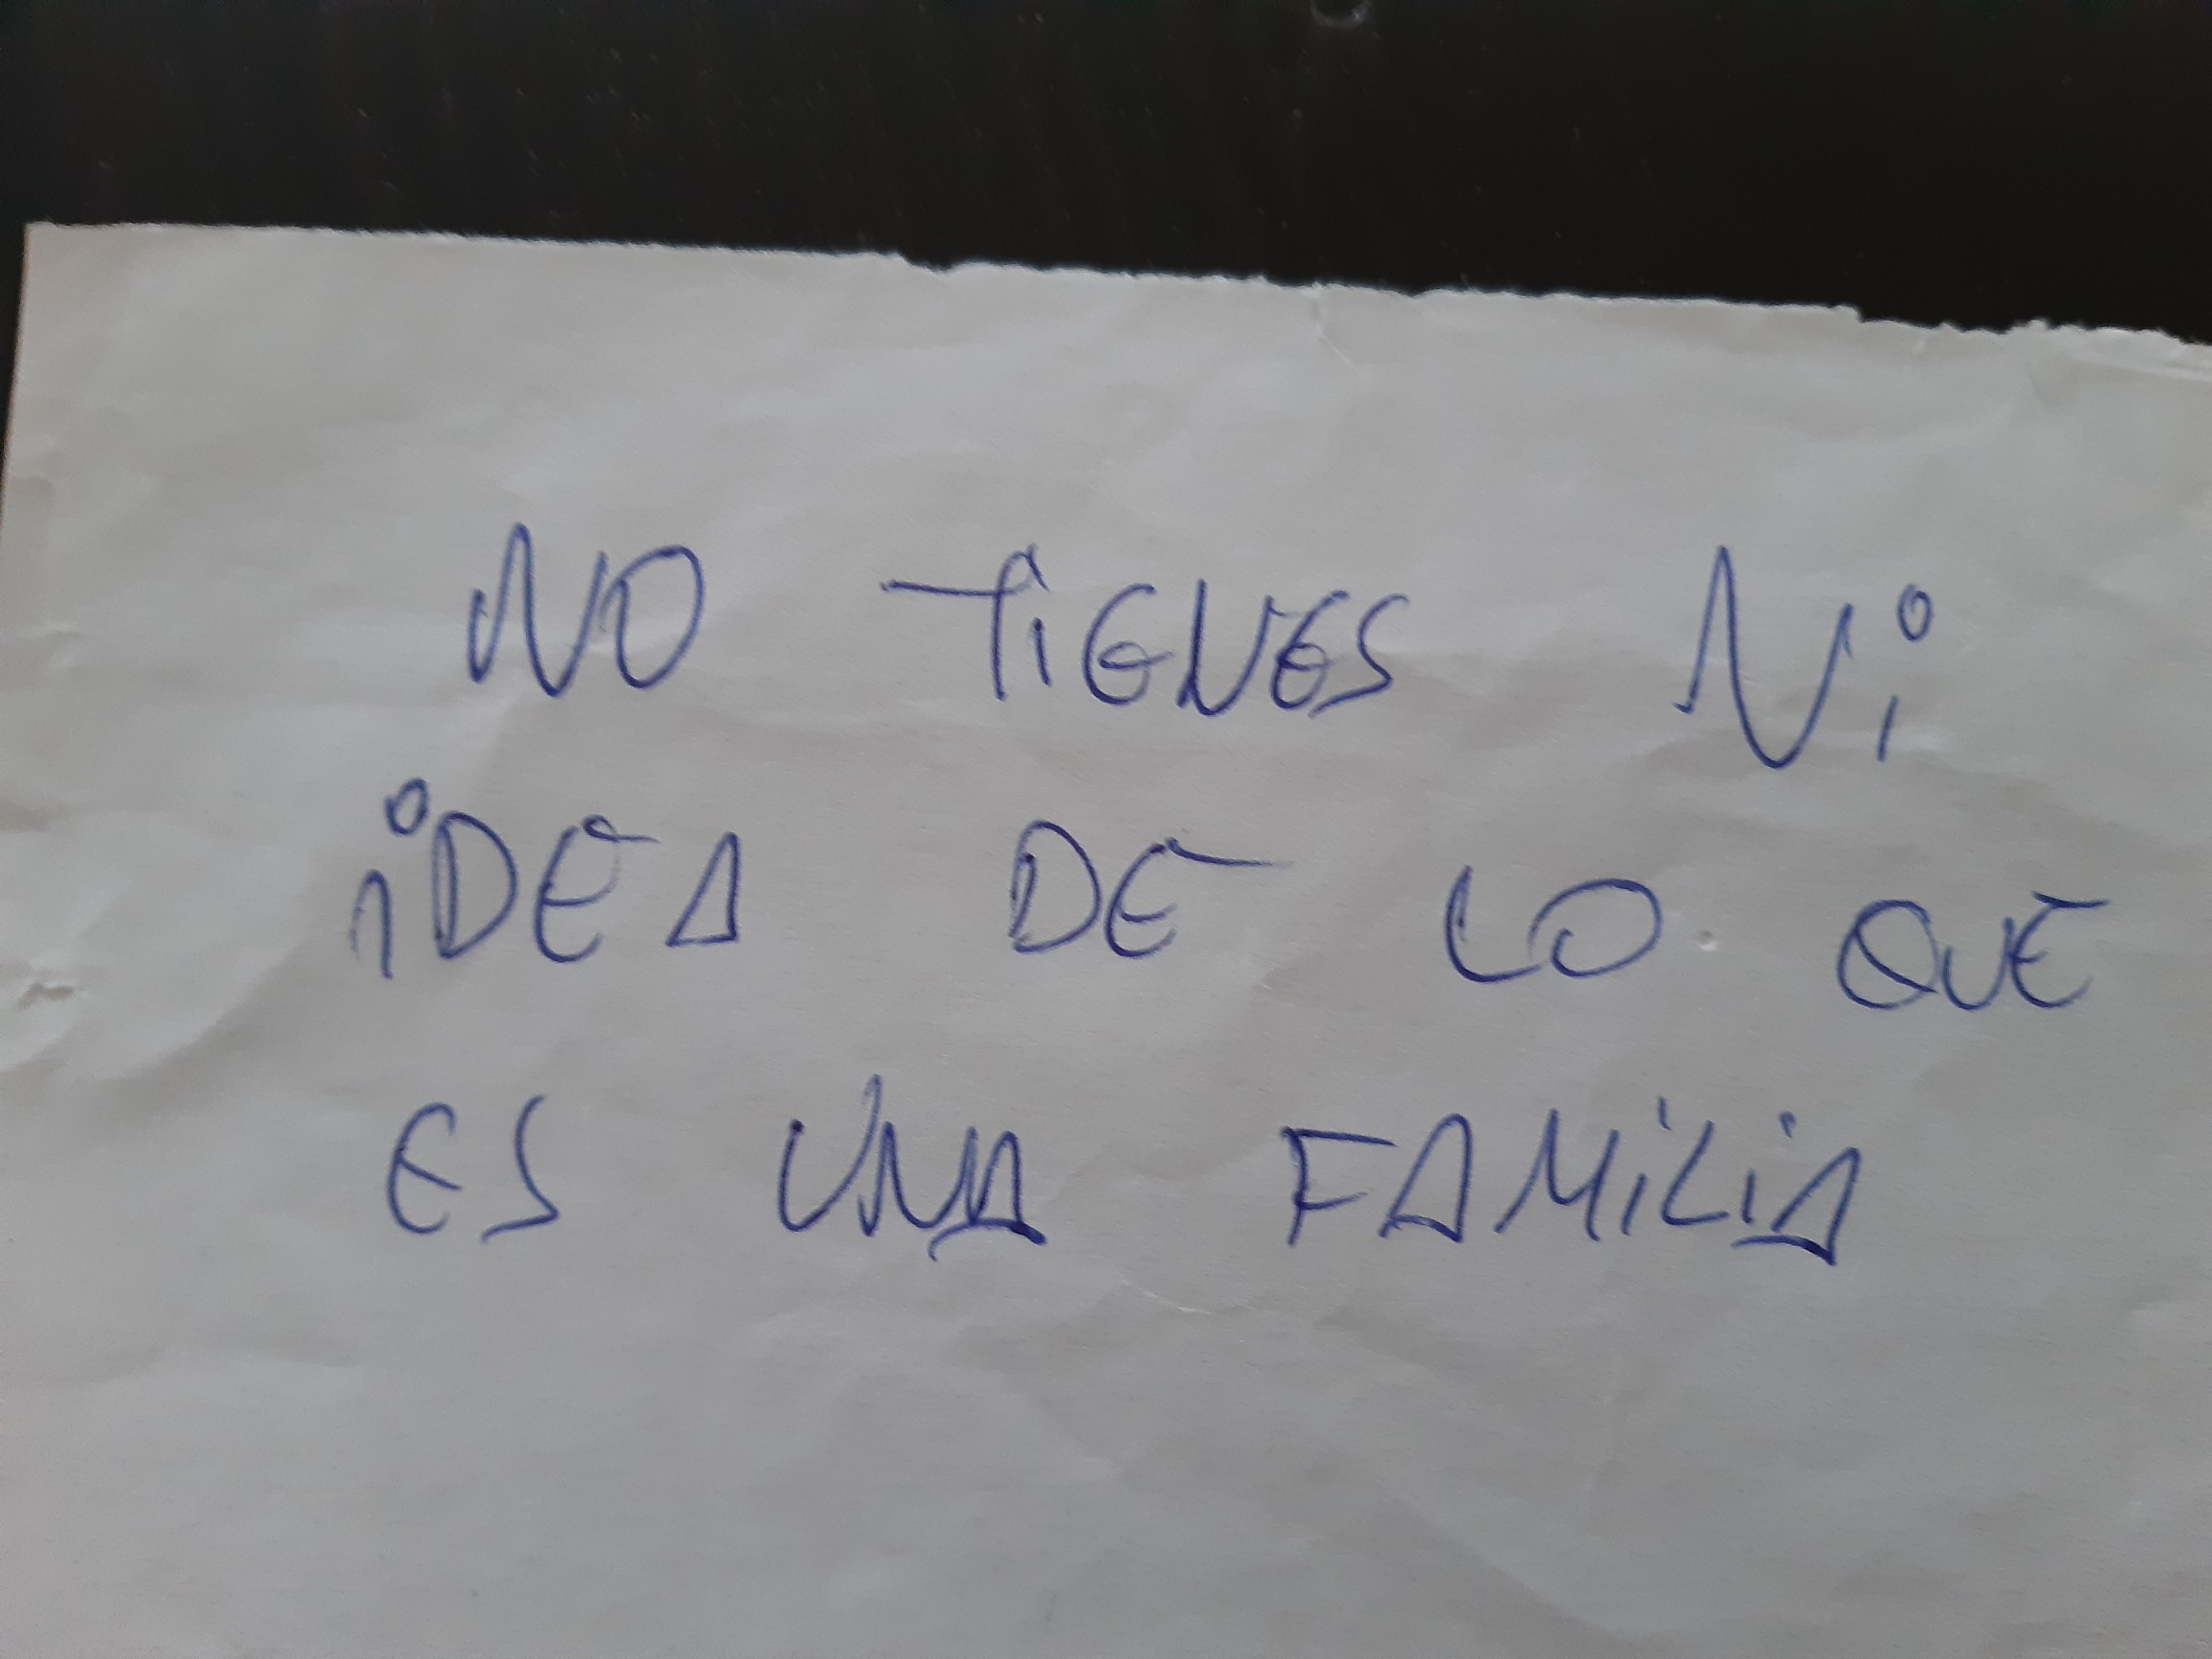 NO TIENES Ni
iDEA DE LO QUE
ES UNA FAMiLiA